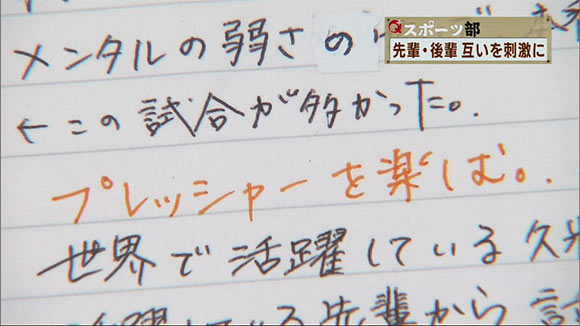 Qスポーツ部
先輩・後輩 互いを刺激に
メンタルの弱さの
←この試合が多かった。
プレッシャーを楽しむ。
世界で活躍している久
る先輩から